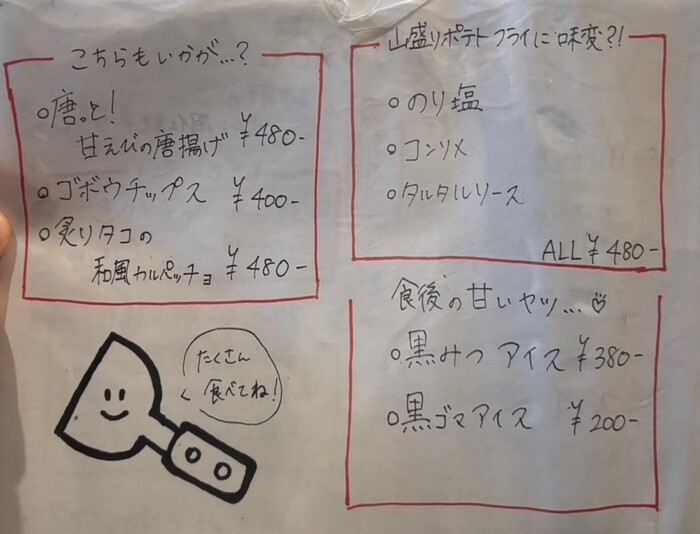 こちらもいかが…?
○唐っと!
甘えびの唐揚げ ¥480-
○ゴボウチップス ¥400-
○炙りタコの
和風カルパッチョ ¥480-
たくさん
食べてね!
山盛りポテトフライに味変?!
○のり塩
○コンソメ
○タルタルソース
ALL ¥480-
食後の甘いヤツ…♡
○黒みつアイス ¥380-
○黒ゴマアイス ¥200-